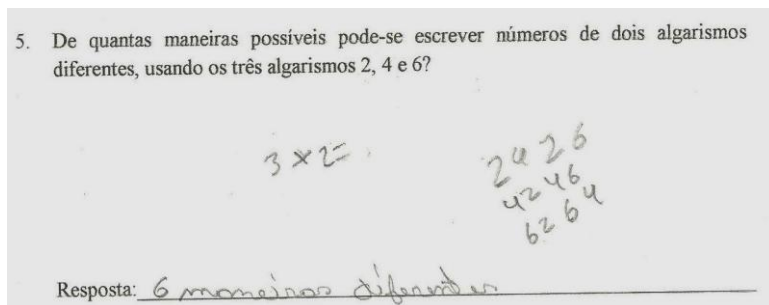 5. De quantas maneiras possíveis pode-se escrever números de dois algarismos
diferentes, usando os três algarismos 2, 4 e 6?
3 x 2=
24 26
42 46
62 64
Resposta: 6 maneiras diferentes